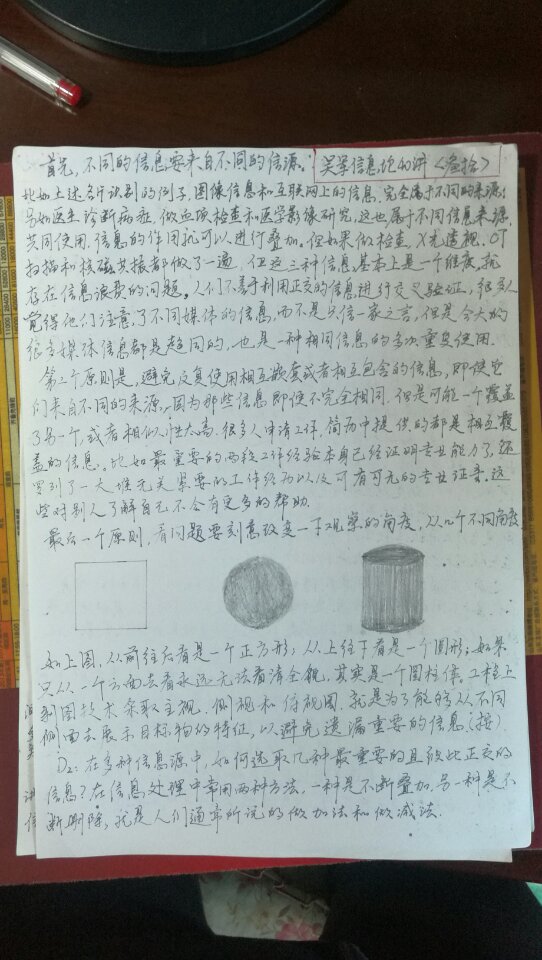 首先,不同的信息要来自不同的信源。 吴军信息论40讲<卷拾>
比如上述各个识别的例子,图像信息和互联网上的信息,完全属于不同的来源;
另如医生诊断病症,做血项检查和医学影像研究,这也属于不同信息来源,
共同使用,信息的作用就可以进行叠加。但如果做检查,X光透视、CT
扫描和核磁共振都做了一遍,但这三种信息基本上是一个维度,就
存在信息浪费的问题。人们不善于利用正交的信息进行交叉验证,很多人
觉得他们注意了不同媒体的信息,而不是只信一家之言,但是今天的
很多媒体信息都是趋同的,也是一种相同信息的多次重复使用。
第二个原则是,避免反复使用相互嵌套或者相互包含的信息,即使它
们来自不同的来源,因为那些信息即使不完全相同,但是可能一个覆盖
了另一个,或者相似性太高。很多人申请工作,简历中提供的都是相互覆
盖的信息。比如最重要的两段工作经验本身已经证明专业能力了,还
罗列了一大堆无关紧要的工作经历以及可有可无的专业证书。这
些对别人了解自己不会有更多的帮助。
最后一个原则,看问题要刻意改变一下观察的角度,从几个不同角度
如上图,从前往后看是一个正方形;从上往下看是一个圆形;如果
只从一个方面去看永远无法看清全貌,其实是一个圆柱体。工程上
制图技术采取主视、侧视和俯视图,就是为了能够从不同
侧面去展示目标物的特征,以避免遗漏重要的信息(接)
D₂:在多种信息源中,如何选取几种最重要的且彼此正交的
信息?在信息处理中常用两种方法,一种是不断叠加,另一种是不
断删除,就是人们通常所说的做加法和做减法.